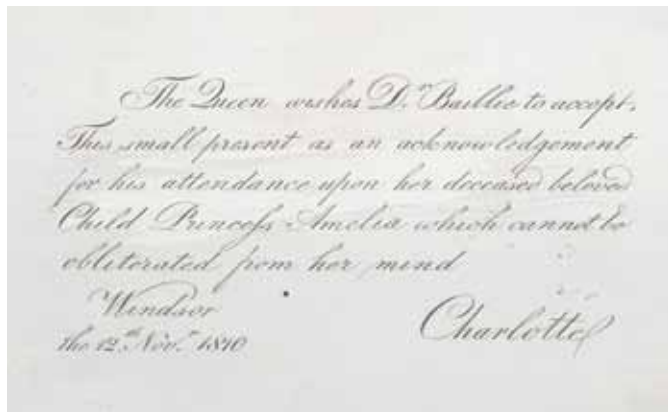 The Queen wishes D.r Baillie to accept.
This small present as an acknowledgement
for his attendance upon her deceased beloved
Child Princess Amelia which cannot be
obliterated from her mind
Windsor
the 12.th Nov.r 1810
Charlotte